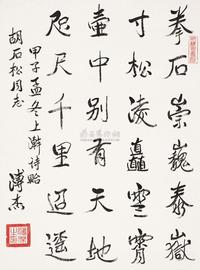 拳石崇巍泰嶽
寸松凌矗雲霄
壺中别有天地
咫尺千里迢遥
甲子孟冬上澣詩貽
胡石松同志
溥杰